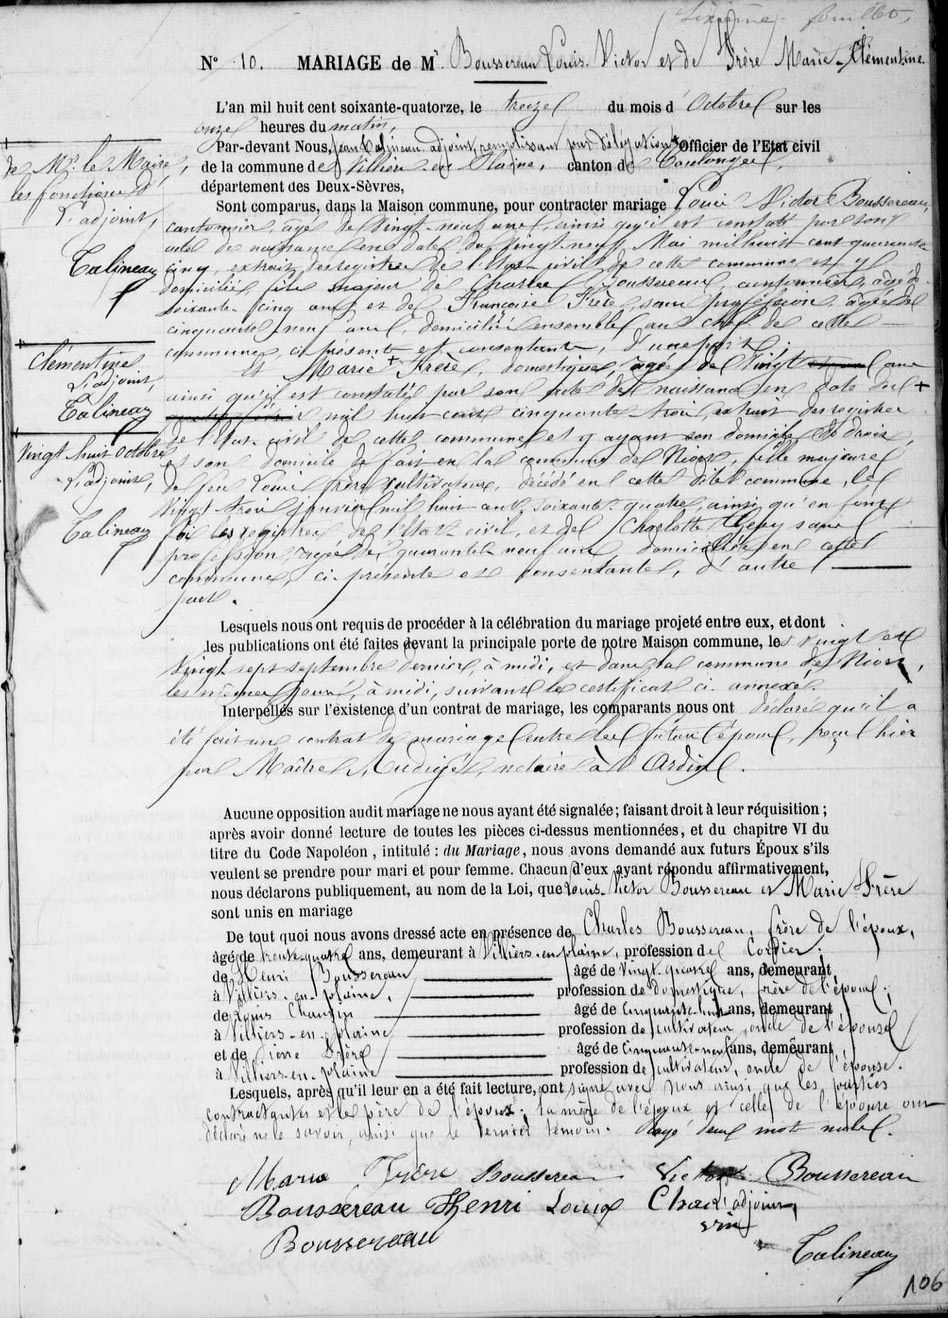 Sixième feuillet,
N° 10. MARIAGE de Mr Boussereau Louis Victor et de Frère Marie Clémentine.
L'an mil huit cent soixante-quatorze, le treize du mois d'Octobre sur les
onze heures du matin,
Par-devant Nous, Jean Talineau adjoint, remplissant par délégation + Officier de l'Etat civil
de la commune de Villiers en Plaine, canton de Coulonges,
département des Deux-Sèvres,
Sont comparus, dans la Maison commune, pour contracter mariage Louis Victor Boussereau,
cantonnier, âgé de vingt-neuf ans, ainsi qu'il est constaté par son
acte de naissance en date du vingt-neuf Mai mil huit cent quarante
cinq, extrait des registres de l'Etat civil de cette commune et y
domicilié, fils majeur de Charles Boussereau, cantonnier, âgé de
soixante-cinq ans et de Françoise Frère, sans profession, âgée de
cinquante neuf ans, domiciliés ensemble au chef de cette
commune, ci présents et consentants, d'une part;
Et Marie + Frère, domestique, âgée de Vingt ans
ainsi qu'il est constaté par son acte de naissance en date du +
mil huit cent cinquante trois extrait des registres
de l'Etat civil de cette commune et y ayant son domicile de droit,
et son domicile de fait en la commune de Niort, fille majeure
de feu Louis Frère, cultivateur, décédé en cette dite commune, le
vingt trois Janvier mil huit cent soixante quatre, ainsi qu'en font
foi les registres de l'Etat civil, et de Charlotte sans
profession, âgée de quarante neuf ans, domiciliée en cette
commune, ci présente et consentante, d'autre
part.
de Mr. le Maire,
les fonctions d'
L'adjoint,
Talineau
Clémentine
L'adjoint,
Talineau
Vingt huit Octobre
L'adjoint,
Talineau
Lesquels nous ont requis de procéder à la célébration du mariage projeté entre eux, et dont
les publications ont été faites devant la principale porte de notre Maison commune, les vingt et
vingt sept septembre dernier, à midi, et dans la commune de Niort,
les mêmes jours, à midi, suivant le certificat ci annexé.
Interpellés sur l'existence d'un contrat de mariage, les comparants nous ont déclaré qu'il a
été fait un contrat de mariage entre les futurs époux, reçu hier
par Maître Audiger, notaire à Ardin.
Aucune opposition audit mariage ne nous ayant été signalée; faisant droit à leur réquisition;
après avoir donné lecture de toutes les pièces ci-dessus mentionnées, et du chapitre VI du
titre du Code Napoléon, intitulé : du Mariage, nous avons demandé aux futurs Époux s'ils
veulent se prendre pour mari et pour femme. Chacun d'eux ayant répondu affirmativement,
nous déclarons publiquement, au nom de la Loi, que Louis Victor Boussereau et Marie Frère
sont unis en mariage
De tout quoi nous avons dressé acte en présence de Charles Boussereau, frère de l'époux,
âgé de trente-quatre ans, demeurant à Villiers-en-plaine, profession de Cordier;
de Henri Boussereau âgé de Vingt-quatre ans, demeurant
à Villiers-en-plaine, profession de domestique, frère de l'époux;
de Louis Chauvin âgé de cinquante-huit ans, demeurant
à Villiers-en-plaine profession de cultivateur, oncle de l'épouse
et de Pierre Frère âgé de cinquante-neuf ans, demeurant
à Villiers-en-plaine profession de cultivateur, oncle de l'épouse.
Lesquels, après qu'il leur en a été fait lecture, ont signé avec Nous ainsi que les parties
contractantes et le père de l'époux; la mère de l'époux et celle de l'épouse ont
déclaré ne le savoir, ainsi que le dernier témoin. Rayé deux mots nuls.
Marie Frère Boussereau Victor Boussereau
Boussereau Henri Louis Chau L'adjoint,
vin
Boussereau
Talineau
106